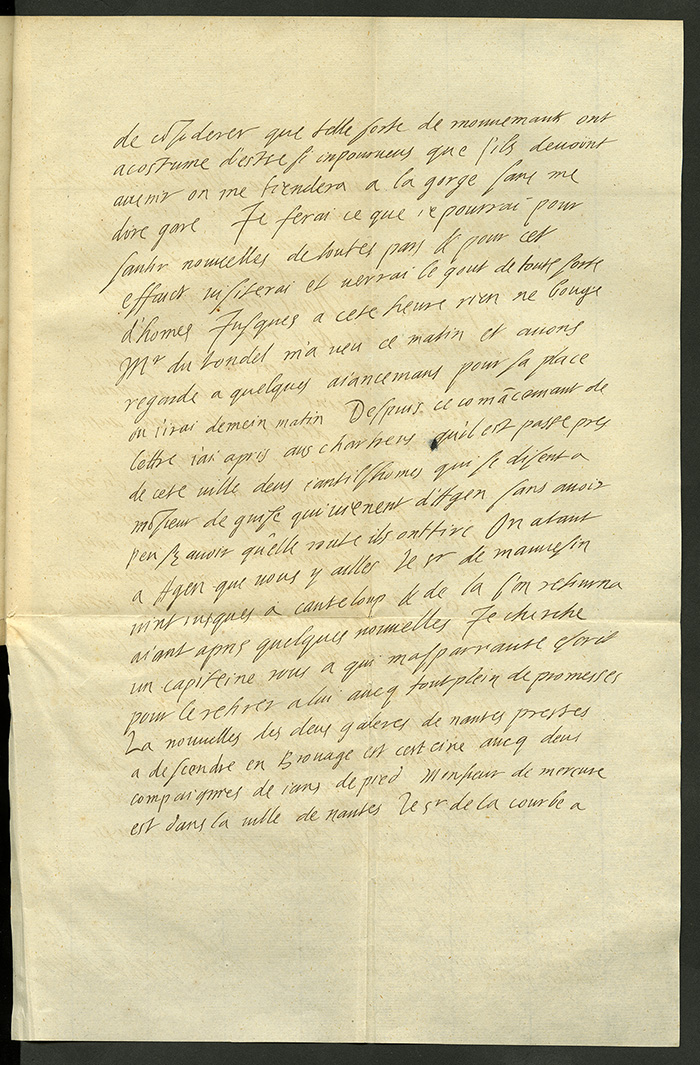 de cõsiderer que telle sorte de mouuemans ont
acostume d'estre si inpourueus que s'ils deuoint
auenir on me tiendera a la gorge sans me
dire gare Je ferai ce que ie pourrai pour
santir nouuelles de toutes pars & pour cet
effaict uisiterai et uerrai le gout de toute sorte
d'homes Jusques a cete heure rien ne bouge
Mr du londel m'a ueu ce matin et auons
regarde a quelques aiancemans pour sa place
ou i'irai demein matin Despuis ce comãcemant de
lettre i'ai apris aus chartreus qu'il est passe pres
de cete uille deus iantilshomes qui se disent a
mõsieur de guise qui uienent d'Agen sans auoir
peu sçauoir quelle route ils ont tire On atant
a Agen que uous y ailles Le sr de mauuesin
uint iusques a canteloup & de la s'en retourna
aiant apris quelques nouuelles Je cherche
un capiteine rous a qui escrit
pour le retirer a lui aueq tout plein de promesses
La nouuelles des deus galeres de nantes prestes
a descendre en Brouage est certeine aueq deus
compaignies de ians de pied Monsieur de mercure
est dans la uille de nantes Le sr de la courbe a